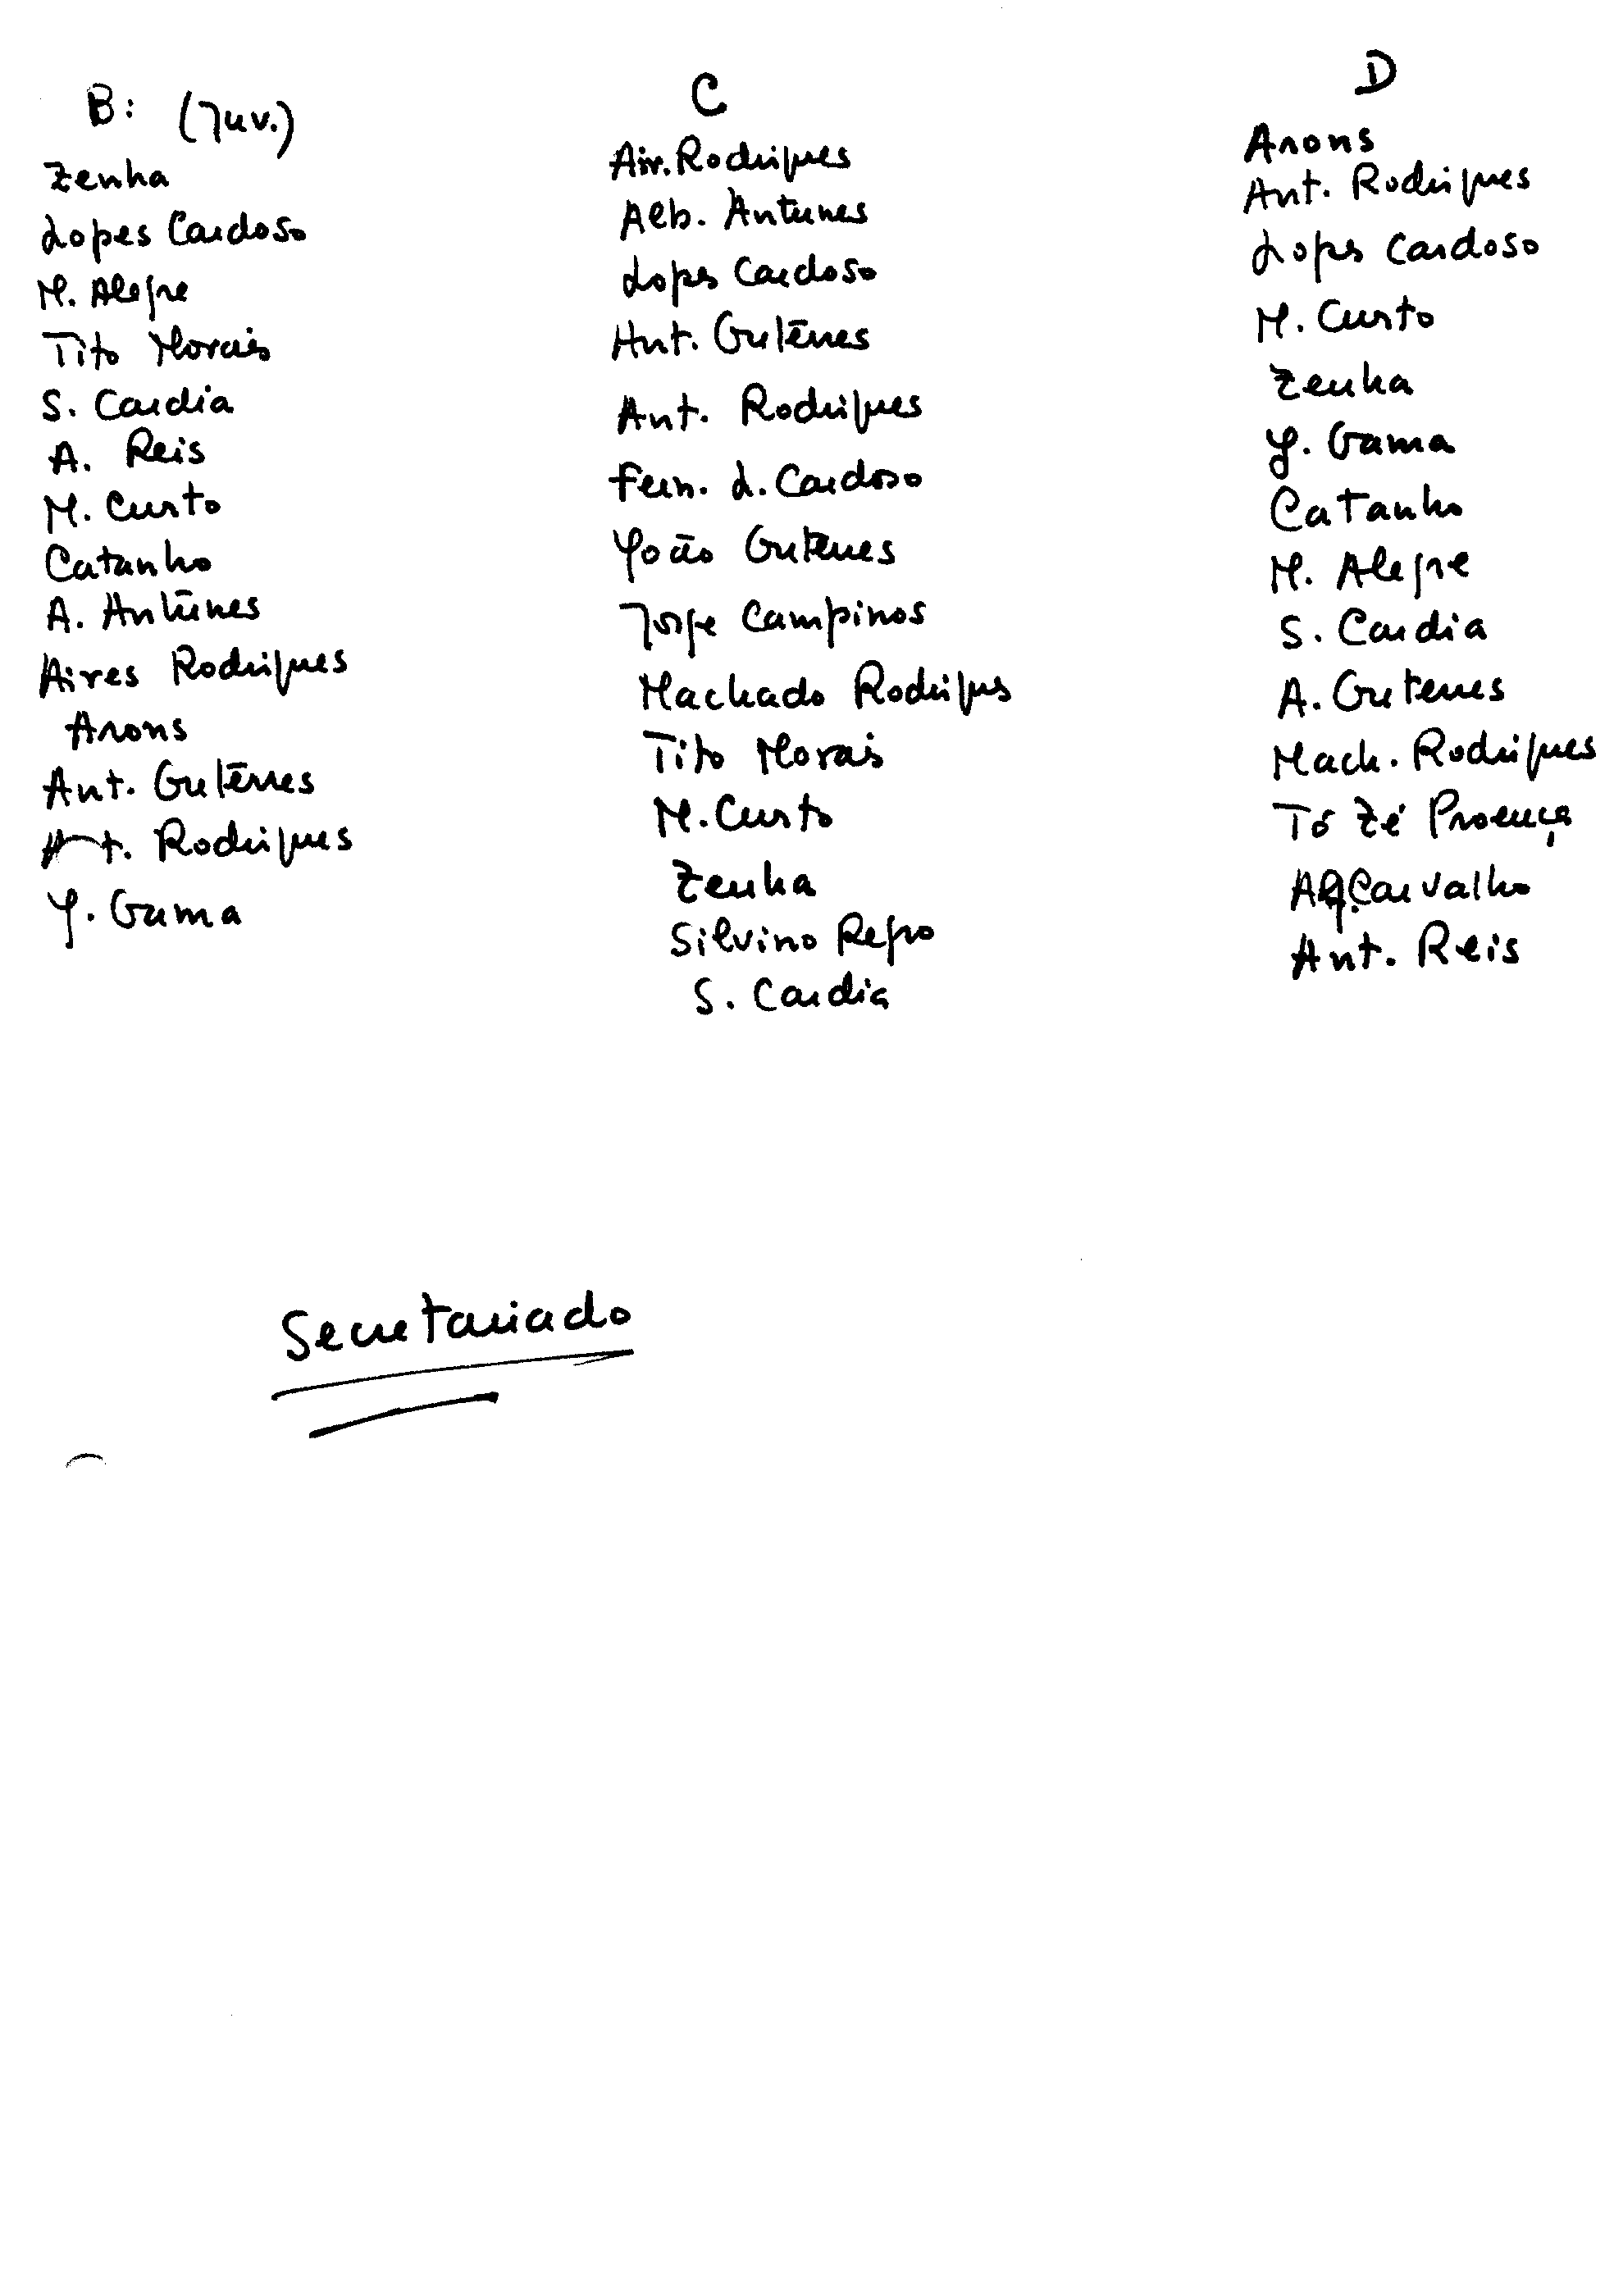 B: (Juv.)
Zenha
Lopes Cardoso
M. Alegre
Tito Morais
S. Cardia
A. Reis
M. Custo
Catanho
A. Antunes
Aires Rodrigues
Arons
Ant. Guterres
Ant. Rodrigues
J. Gama
C
Air. Rodrigues
Alb. Antunes
Lopes Cardoso
Ant. Guterres
Ant. Rodrigues
Fern. L. Cardoso
João Guterres
Jorge Campinos
Machado Rodrigues
Tito Morais
M. Custo
Zenha
Silvino Rego
S. Cardia
D
Arons
Ant. Rodrigues
Lopes Cardoso
M. Custo
Zenha
J. Gama
Catanho
M. Alegre
S. Cardia
A. Guterres
Mach. Rodrigues
Tó Zé Proença
Carvalho
Ant. Reis
Secretariado